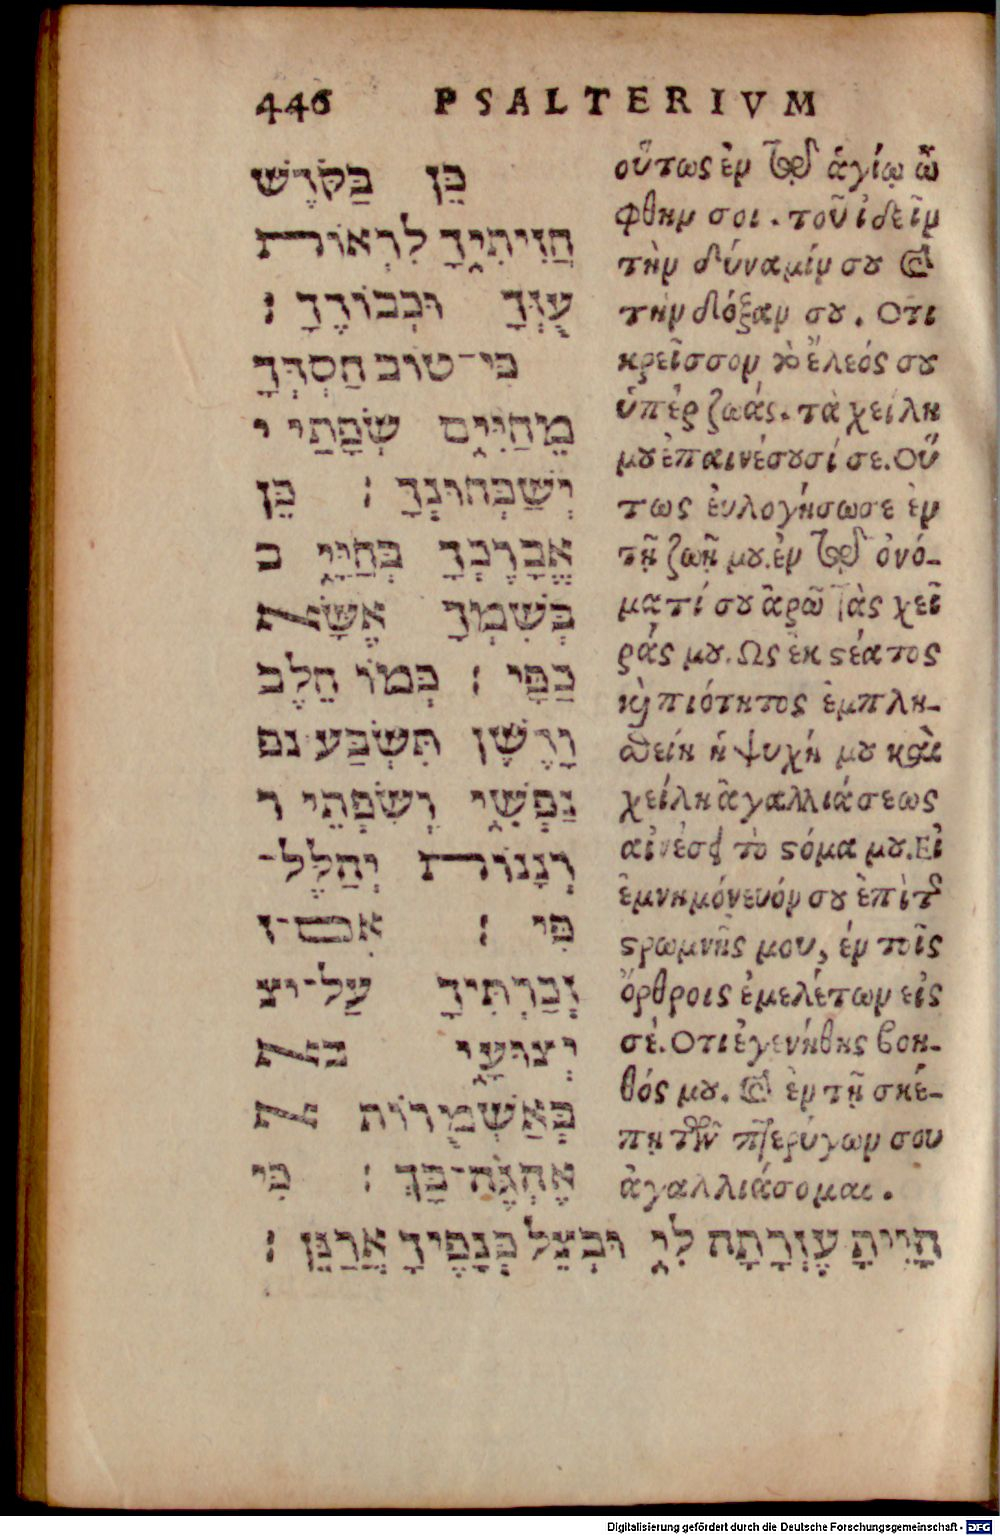 446 PSALTERIVM
כֵּן בַּקֹּדֶשׁ
חֲזִיתִיךָ לִרְאוֹת
עֻזְּךָ וּכְבוֹדֶךָ ׃
כִּי־טוֹב חַסְדְּךָ
מֵחַיִּים שְׂפָתַי י
יְשַׁבְּחוּנְךָ ׃ כֵּן
אֲבָרֶכְךָ בְּחַיָּי ב
בְּשִׁמְךָ אֶשָּׂא
כַפָּי ׃ כְּמוֹ חֵלֶב
וָדֶשֶׁן תִּשְׂבַּע נפ
נַפְשִׁי וְשִׂפְתֵי ר
רְנָנוֹת יְהַלֶּל־
פִּי ׃ אִם־ז
זְכַרְתִּיךָ עַל־יצ
יְצוּעָי בא
בְּאַשְׁמֻרוֹת א
אֶהְגֶּה־בָּךְ ׃ כִּי
הָיִיתָ עֶזְרָתָה לִּי וּבְצֵל כְּנָפֶיךָ אֲרַנֵּן ׃
οὕτως ἐν τῷ ἁγίῳ ὤ
φθην σοι. τοῦ ἰδεῖν
τὴν δύναμίν σου καὶ
τὴν δόξαν σου. Οτι
κρεῖσσον τὸ ἔλεός σου
ὑπὲρ ζωάς. τὰ χείλη
μου ἐπαινέσουσί σε. Οὕ
τως ἐυλογήσω σε ἐν
τῇ ζωῇ μου. ἐν τῷ ὀνό-
ματί σου ἀρῶ τὰς χεῖ
ράς μου. Ως ἐκ στέατος
καὶ πιότητος ἐμπλη-
σθείη ἡ ψυχή μου καὶ
χείλη ἀγαλλιάσεως
αἰνέσει τὸ στόμα μου. Εἰ
ἐμνημόνευόν σου ἐπὶ τῆς
στρωμνῆς μου, ἐν τοῖς
ὄρθροις ἐμελέτων εἰς
σέ. Οτι ἐγενήθης βοη-
θός μου. καὶ ἐν τῇ σκέ-
πῃ τῶν πτερύγων σου
ἀγαλλιάσομαι.
Digitalisierung gefördert durch die Deutsche Forschungsgemeinschaft - DFG